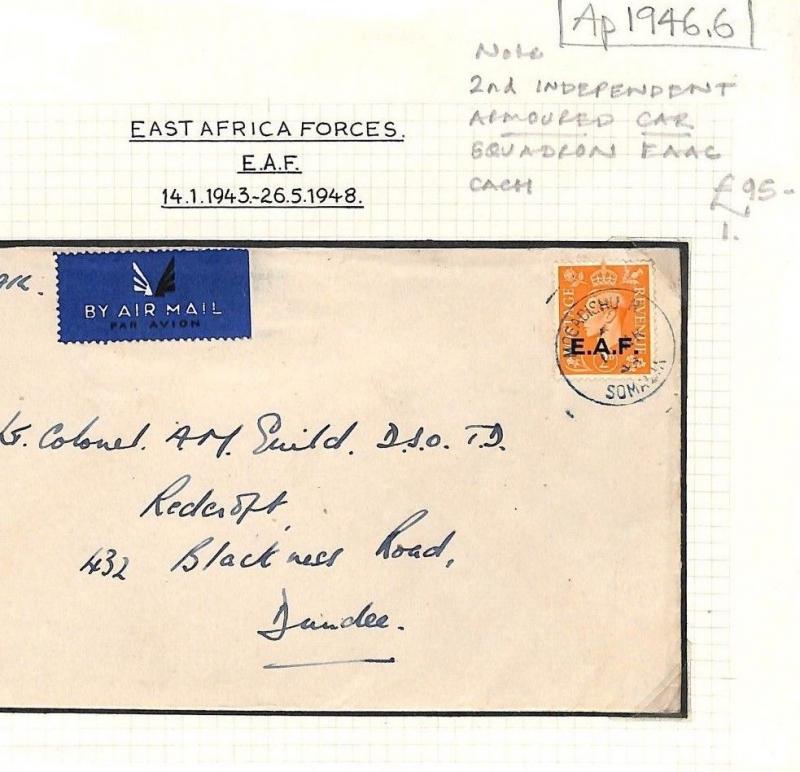 Ap1946.6
Note
2nd INDEPENDENT
ARMOURED CAR
SQUADRON EAAC
CACH
£95-
1.
EAST AFRICA FORCES.
E.A.F.
14.1.1943.-26.5.1948.
BY AIR MAIL
PAR AVION
POSTAGE
REVENUE
E.A.F.
MOGADISHU
SOMALIA
Lt. Colonel. A.M. Guild. D.S.O. T.D.
Redcroft,
432 Blackness Road,
Dundee.